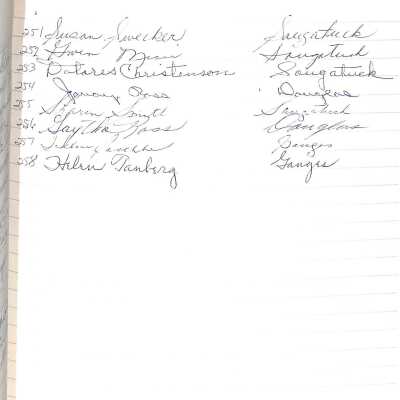 251 Susan Swecker Saugatuck
252 Gwen Saugatuck
253 Dolores Christenson Saugatuck
254 Ross Douglas
255 Sharon Smith Saugatuck
256 Ross Douglas
257 Ganges
258 Helen Tanberg Ganges